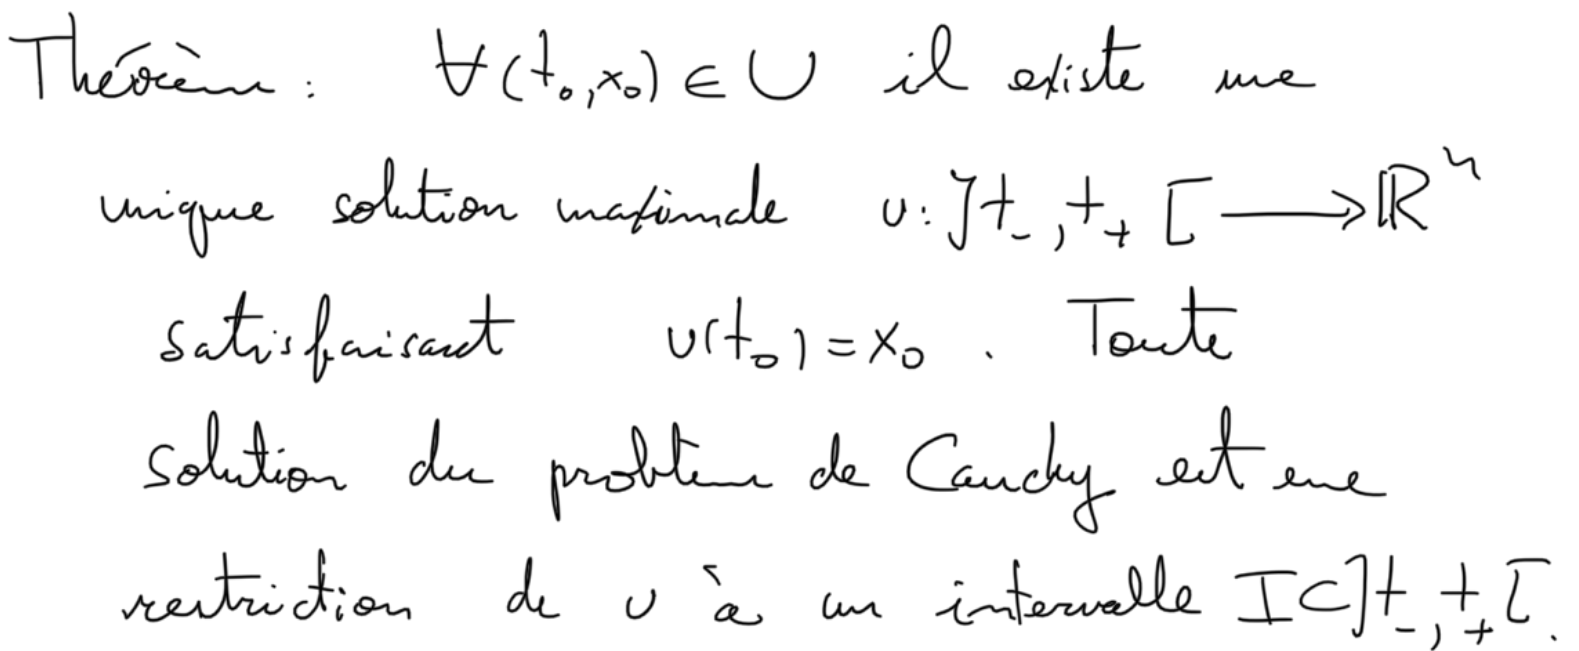 Théorème : ∀(t₀,x₀) ∈ U il existe une
unique solution maximale u: ]t₋,t₊[ ⟶ ℝⁿ
satisfaisant u(t₀) = x₀ . Toute
solution du problème de Cauchy est une
restriction de u à un intervalle I⊂]t₋,t₊[.